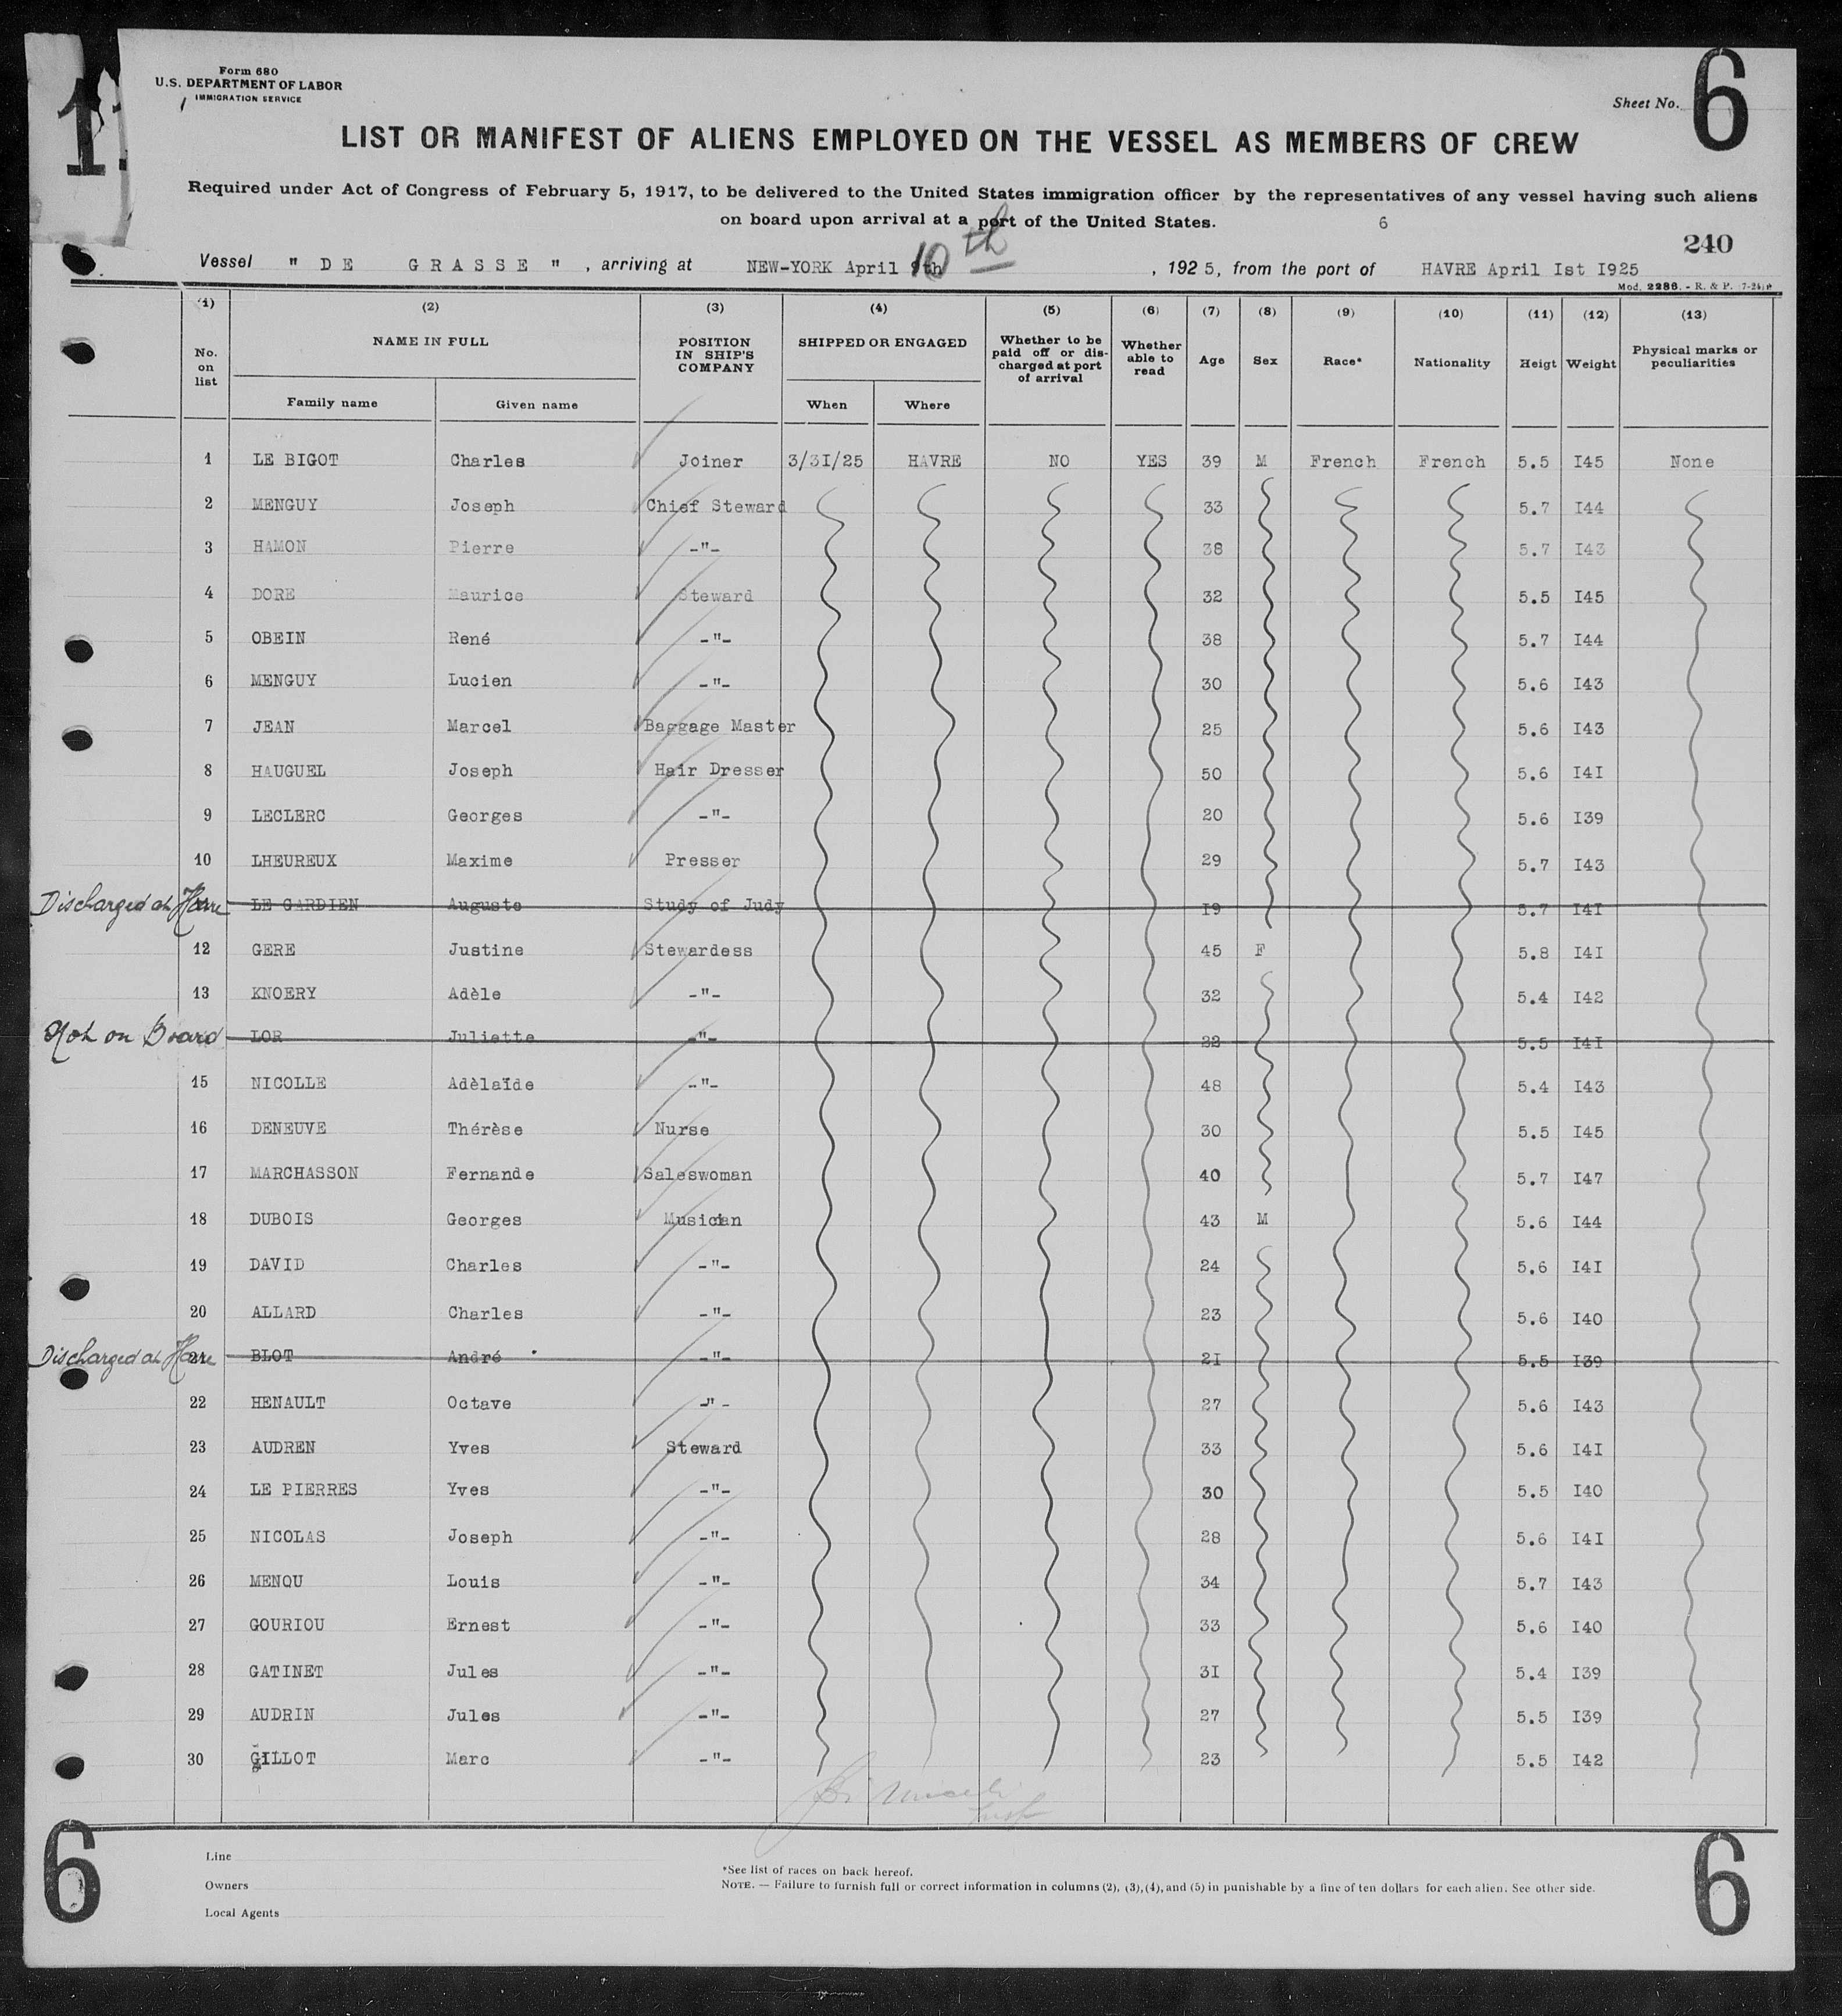 Form 680
U.S. DEPARTMENT OF LABOR
IMMIGRATION SERVICE
Sheet No. 6
LIST OR MANIFEST OF ALIENS EMPLOYED ON THE VESSEL AS MEMBERS OF CREW
Required under Act of Congress of February 5, 1917, to be delivered to the United States immigration officer by the representatives of any vessel having such aliens
on board upon arrival at a port of the United States.
6
240
Vessel " DE GRASSE " , arriving at NEW-YORK April 10th , 1925, from the port of HAVRE April Ist I925
Mod. 2286. - R. & P. 7-24
(1) (2) (3) (4) (5) (6) (7) (8) (9) (10) (11) (12) (13)
No. on list NAME IN FULL POSITION IN SHIP'S COMPANY SHIPPED OR ENGAGED Whether to be paid off or discharged at port of arrival Whether able to read Age Sex Race* Nationality Heigt Weight Physical marks or peculiarities
Family name Given name When Where
1 LE BIGOT Charles Joiner 3/3I/25 HAVRE NO YES 39 M French French 5.5 I45 None
2 MENGUY Joseph Chief Steward 33 5.7 I44
3 HAMON Pierre -"- 38 5.7 I43
4 DORE Maurice Steward 32 5.5 I45
5 OBEIN René -"- 38 5.7 I44
6 MENGUY Lucien -"- 30 5.6 I43
7 JEAN Marcel Baggage Master 25 5.6 I43
8 HAUGUEL Joseph Hair Dresser 50 5.6 I4I
9 LECLERC Georges -"- 20 5.6 I39
10 LHEUREUX Maxime Presser 29 5.7 I43
Discharged at Havre LE GARDIEN Auguste Study of Judy I9 5.7 I4I
12 GERE Justine Stewardess 45 F 5.8 I4I
13 KNOERY Adèle -"- 32 5.4 I42
Not on Board LOR Juliette -"- 5.5 I4I
15 NICOLLE Adèlaïde -"- 48 5.4 I43
16 DENEUVE Thérèse Nurse 30 5.5 I45
17 MARCHASSON Fernande Saleswoman 40 5.7 I47
18 DUBOIS Georges Musician 43 M 5.6 I44
19 DAVID Charles -"- 24 5.6 I4I
20 ALLARD Charles -"- 23 5.6 I40
Discharged at Havre 21 BLOT André -"- 2I 5.5 I39
22 HENAULT Octave -"- 27 5.6 I43
23 AUDREN Yves Steward 33 5.6 I4I
24 LE PIERRES Yves -"- 30 5.5 I40
25 NICOLAS Joseph -"- 28 5.6 I4I
26 MENOU Louis -"- 34 5.7 I43
27 GOURIOU Ernest -"- 33 5.6 I40
28 GATINET Jules -"- 3I 5.4 I39
29 AUDRIN Jules -"- 27 5.5 I39
30 GILLOT Marc -"- 23 5.5 I42
Line
Owners
Local Agents
*See list of races on back hereof.
NOTE. — Failure to furnish full or correct information in columns (2), (3), (4), and (5) in punishable by a fine of ten dollars for each alien. See other side.
6
6